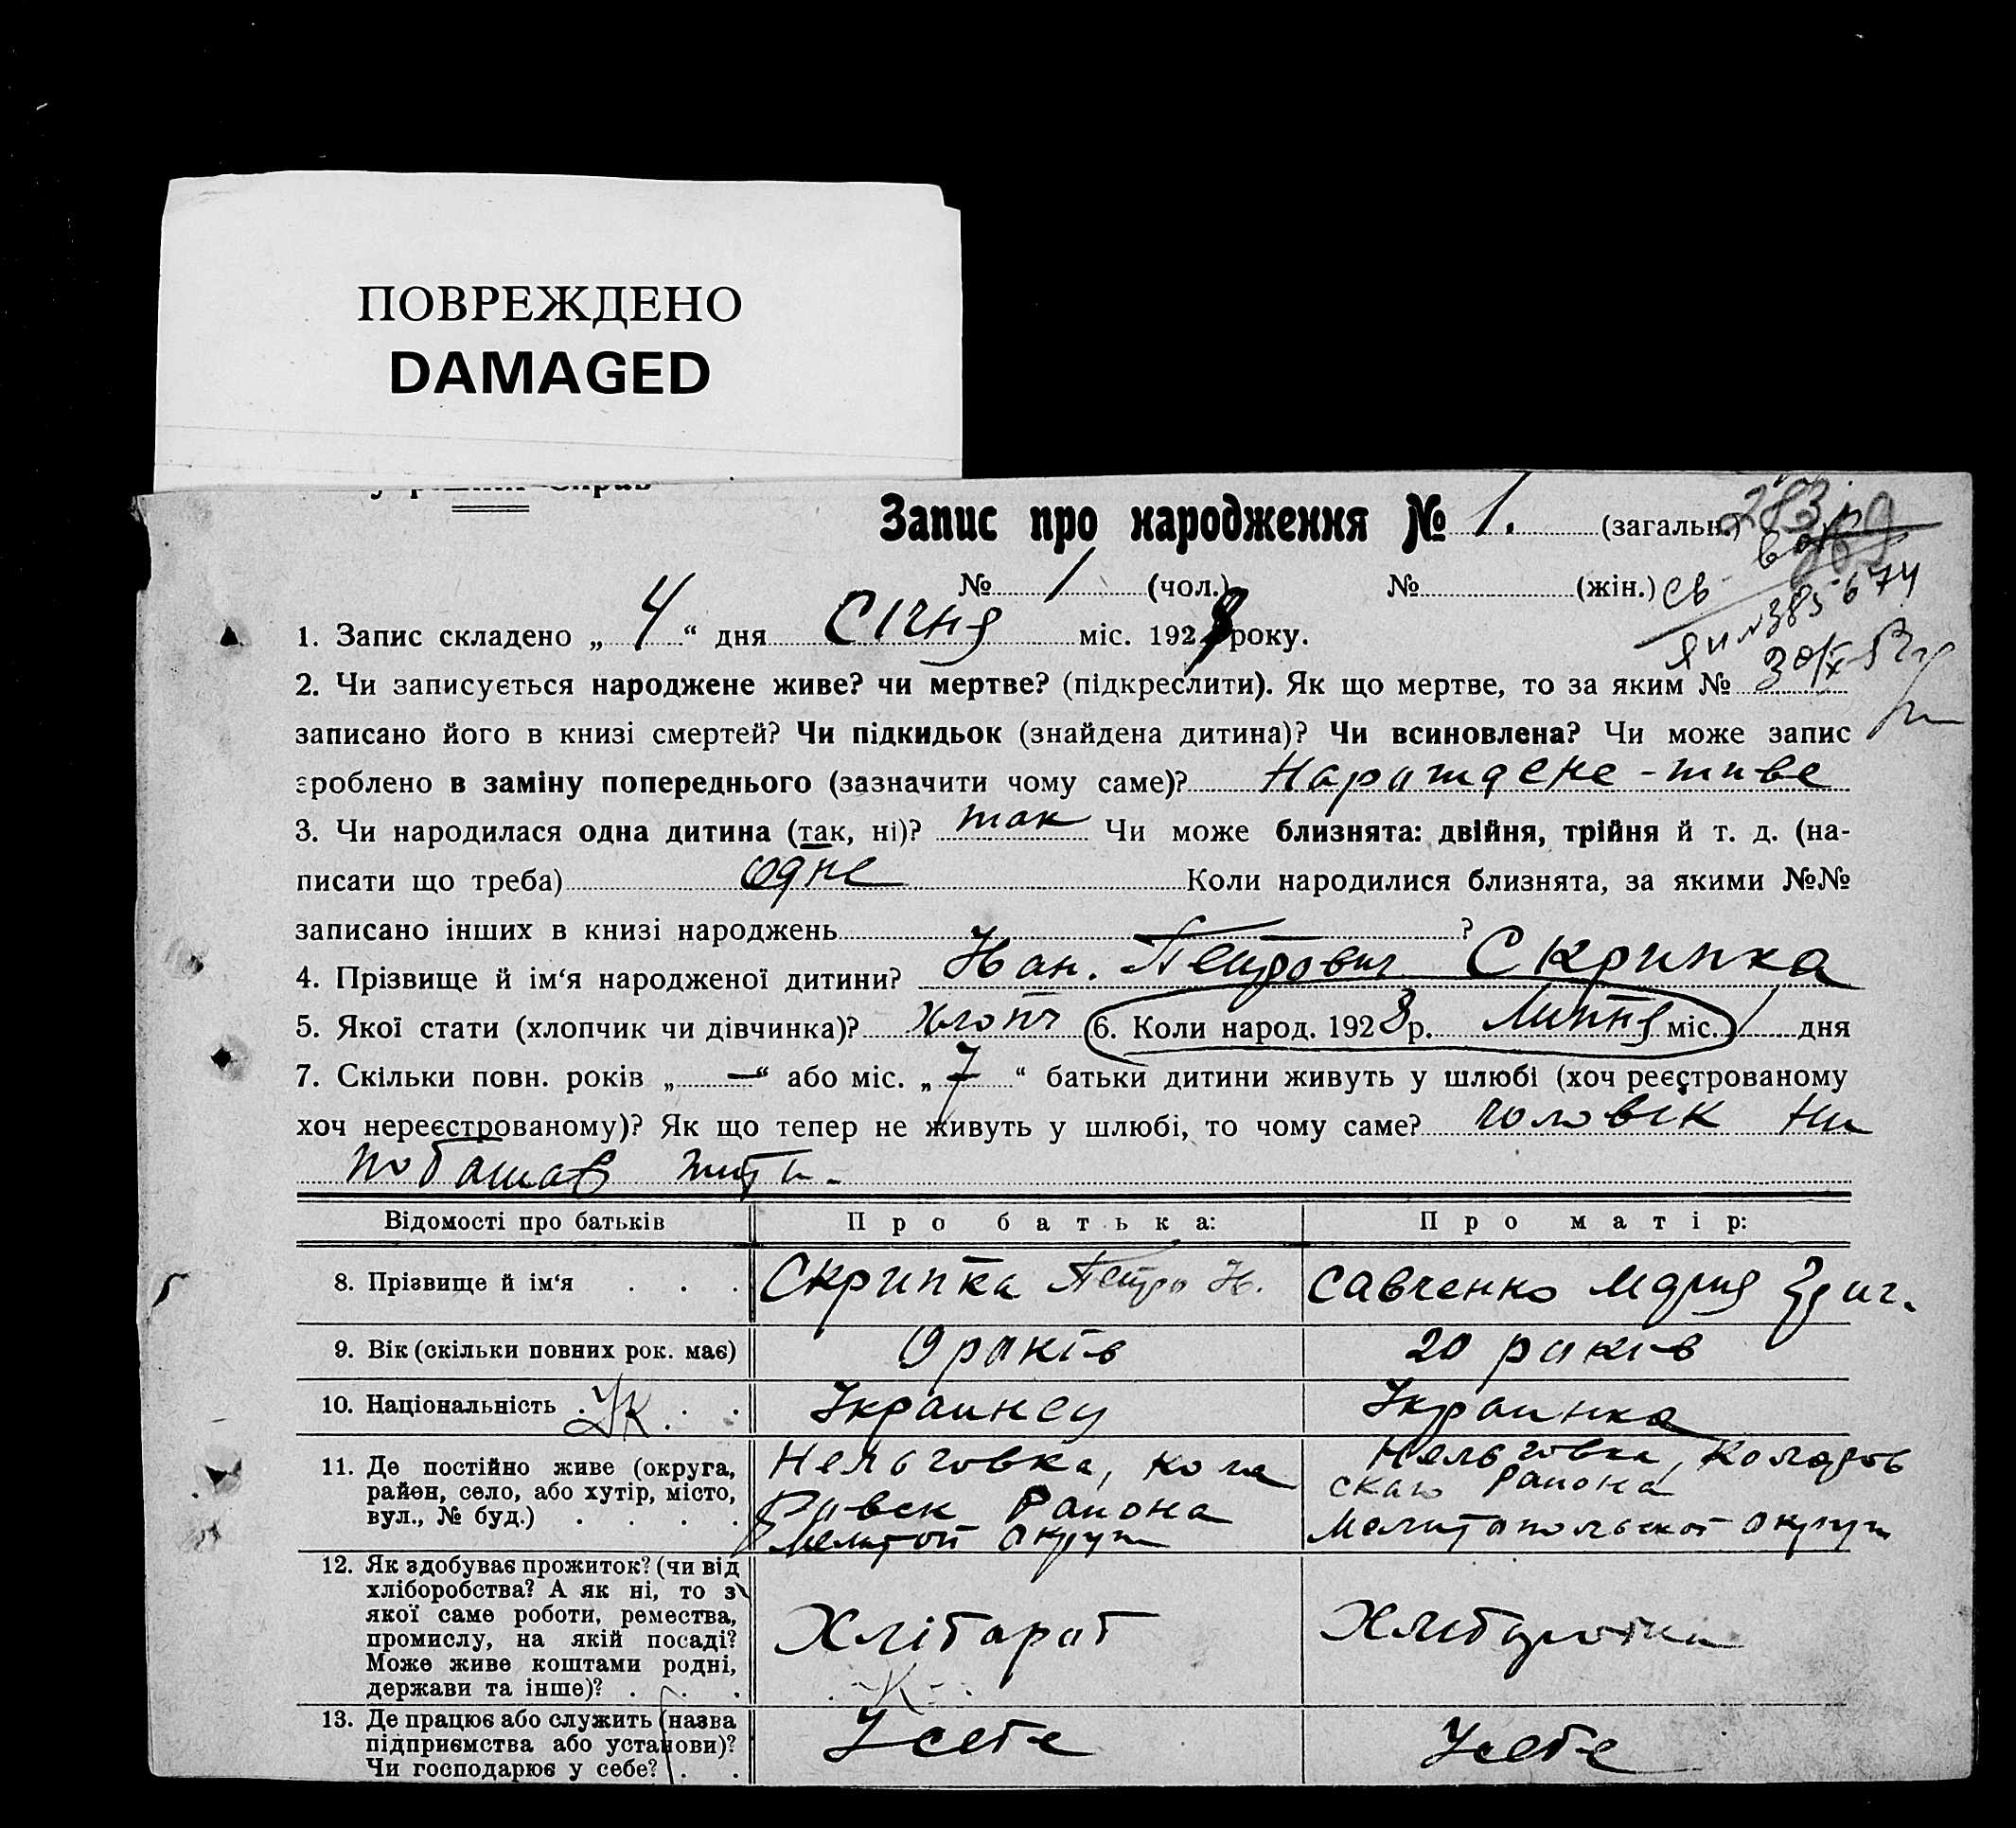 ПОВРЕЖДЕНО
DAMAGED
Запис про народження № 1. (загальн.)
№ 1 (чол.) № (жін.)
1. Запис складено „ 4 “ дня Січня міс. 1929 року.
2. Чи записується народжене живе? чи мертве? (підкреслити). Як що мертве, то за яким №
записано його в книзі смертей? Чи підкидьок (знайдена дитина)? Чи всиновлена? Чи може запис
зроблено в заміну попереднього (зазначити чому саме)? Нараждене - живе
3. Чи народилася одна дитина (так, ні)? так Чи може близнята: двійня, трійня й т. д. (на-
писати що треба) одне Коли народилися близнята, за якими №№
записано інших в книзі народжень ?
4. Прізвище й ім‘я народженої дитини? Петрович Скрипка
5. Якої стати (хлопчик чи дівчинка)? хлопч 6. Коли народ. 1928 р. Липня міс. 1 дня
7. Скільки повн. років „ — “ або міс. „ 7 “ батьки дитини живуть у шлюбі (хоч реєстрованому
хоч нереєстрованому)? Як що тепер не живуть у шлюбі, то чому саме? чоловік ни
побажав жити.
Відомості про батьків Про батька: Про матір:
8. Прізвище й ім‘я . . . Скрипка Петро Савченко Мария
9. Вік (скільки повних рок. має) 19 раків 20 раків
10. Національність . . . Ук. Украинец Украинка
11. Де постійно живе (округа, район, село, або хутір, місто, вул., № буд.) . . . .
Нельговка, района округи
Нельговка, района
Мелитопольской округи
12. Як здобуває прожиток? (чи від хліборобства? А як ні, то з якої саме роботи, ремества, промислу, на якій посаді? Може живе коштами родні, держави та інше)? . . .
Хлібароб
13. Де працює або служить (назва підприємства або установи)? Чи господарює у себе? . .
Усебе Усебе